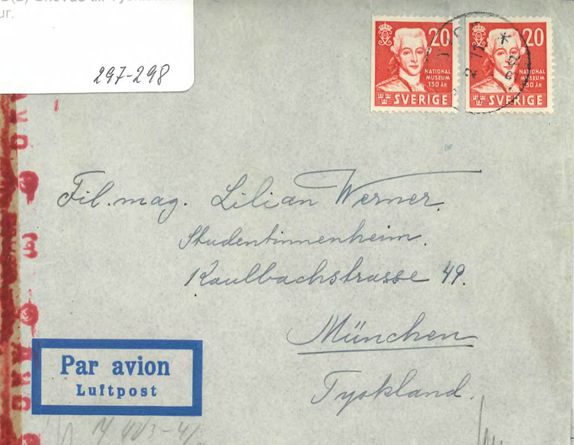 ur.
297-298
20
NATIONAL
MUSEUM
150 ÅR
SVERIGE
20
NATIONAL
MUSEUM
150 ÅR
SVERIGE
Fil. mag. Lilian Werner.
Studentinnenheim.
Kaulbachstrasse 49.
München
Tyskland.
Par avion
Luftpost